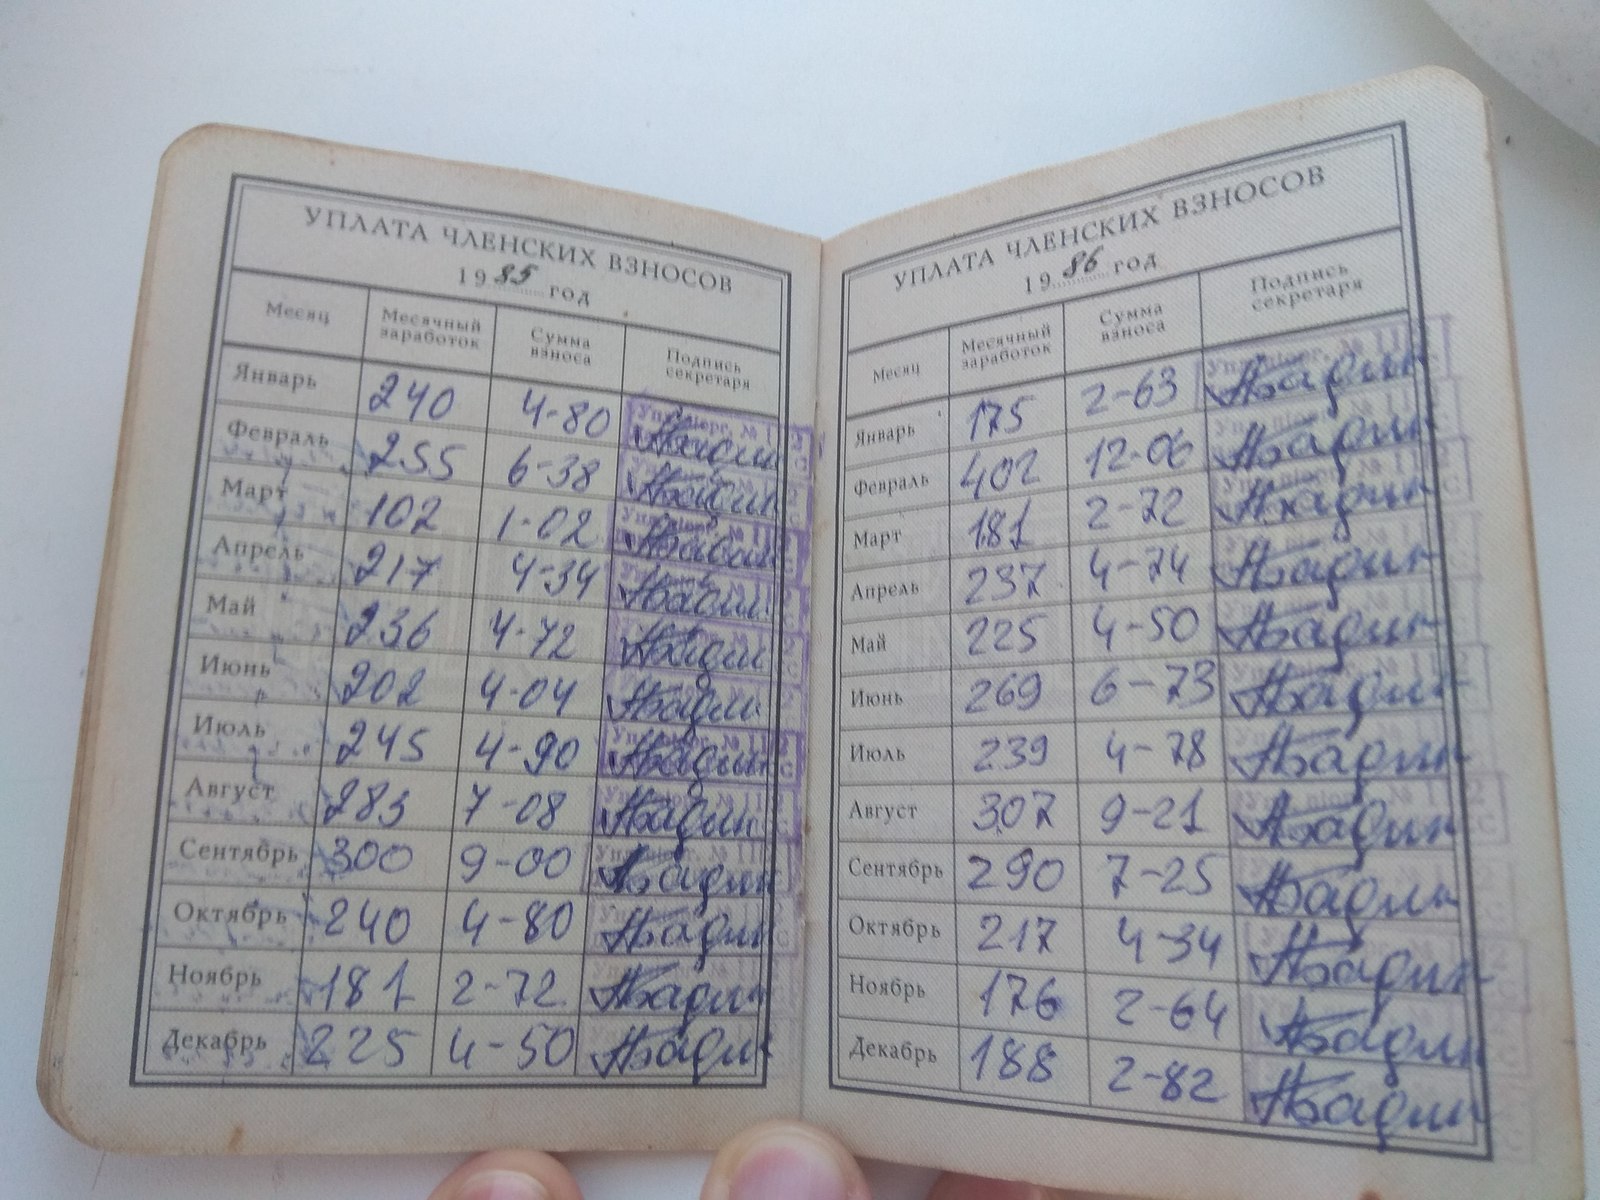 УПЛАТА ЧЛЕНСКИХ ВЗНОСОВ
1985 год
Месяц Месячный заработок Сумма взноса Подпись секретаря
Январь 240 4-80
Февраль 255 6-38
Март 102 1-02
Апрель 217 4-34
Май 236 4-72
Июнь 202 4-04
Июль 245 4-90
Август 283 7-08
Сентябрь 300 9-00
Октябрь 240 4-80
Ноябрь 181 2-72
Декабрь 225 4-50
УПЛАТА ЧЛЕНСКИХ ВЗНОСОВ
1986 год
Месяц Месячный заработок Сумма взноса Подпись секретаря
Январь 175 2-63
Февраль 402 12-06
Март 181 2-72
Апрель 237 4-74
Май 225 4-50
Июнь 269 6-73
Июль 239 4-78
Август 307 9-21
Сентябрь 290 7-25
Октябрь 217 4-34
Ноябрь 176 2-64
Декабрь 188 2-82